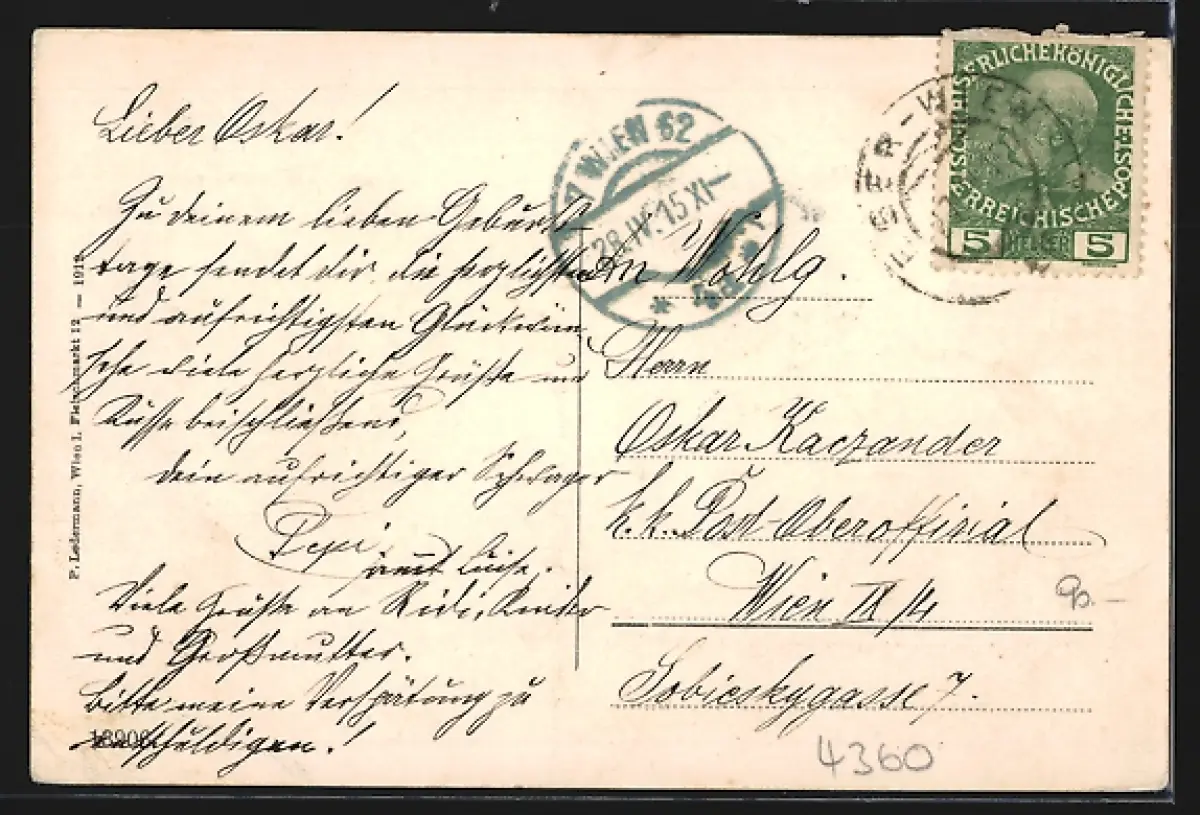 Lieber Oskar!
Zu deinem lieben Geburts-
tage sendet dir die herzlichsten
und aufrichtigsten Glückwün-
sche viele herzliche Grüße und
Küsse beischließend,
dein aufrichtiger Schwager
Pepi
samt Luise.
Viele Grüße an Kinder
und Großmutter.
Bitte meine Verspätung zu
entschuldigen!
P. Ledermann, Wien I, Fleischmarkt 12 — 1912
1 WIEN 62
28.IV. 15 XI—
An Wohlg.
Herrn
Oskar Kaczander
k.k. Post-Oberoffizial
Wien IX/4
Sobieskygasse 7.
KAISERLICHE KÖNIGLICHE POST
ÖSTERREICHISCHE
5 HELLER 5
4360